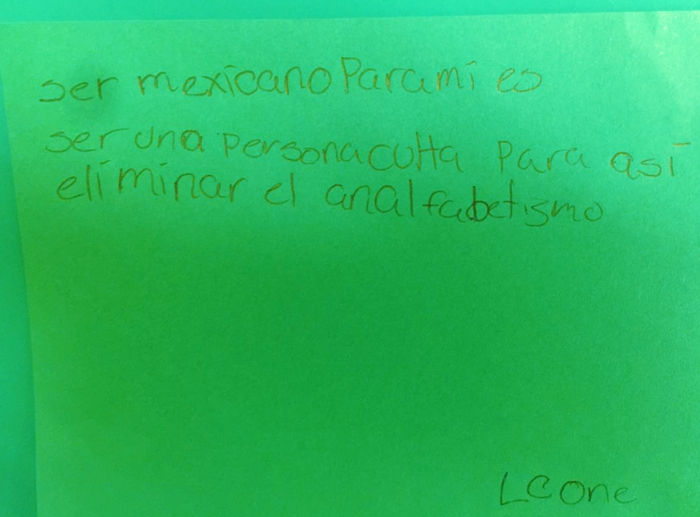 ser mexicano Para mí es
ser una persona culta para así
eliminar el analfabetismo
Leone